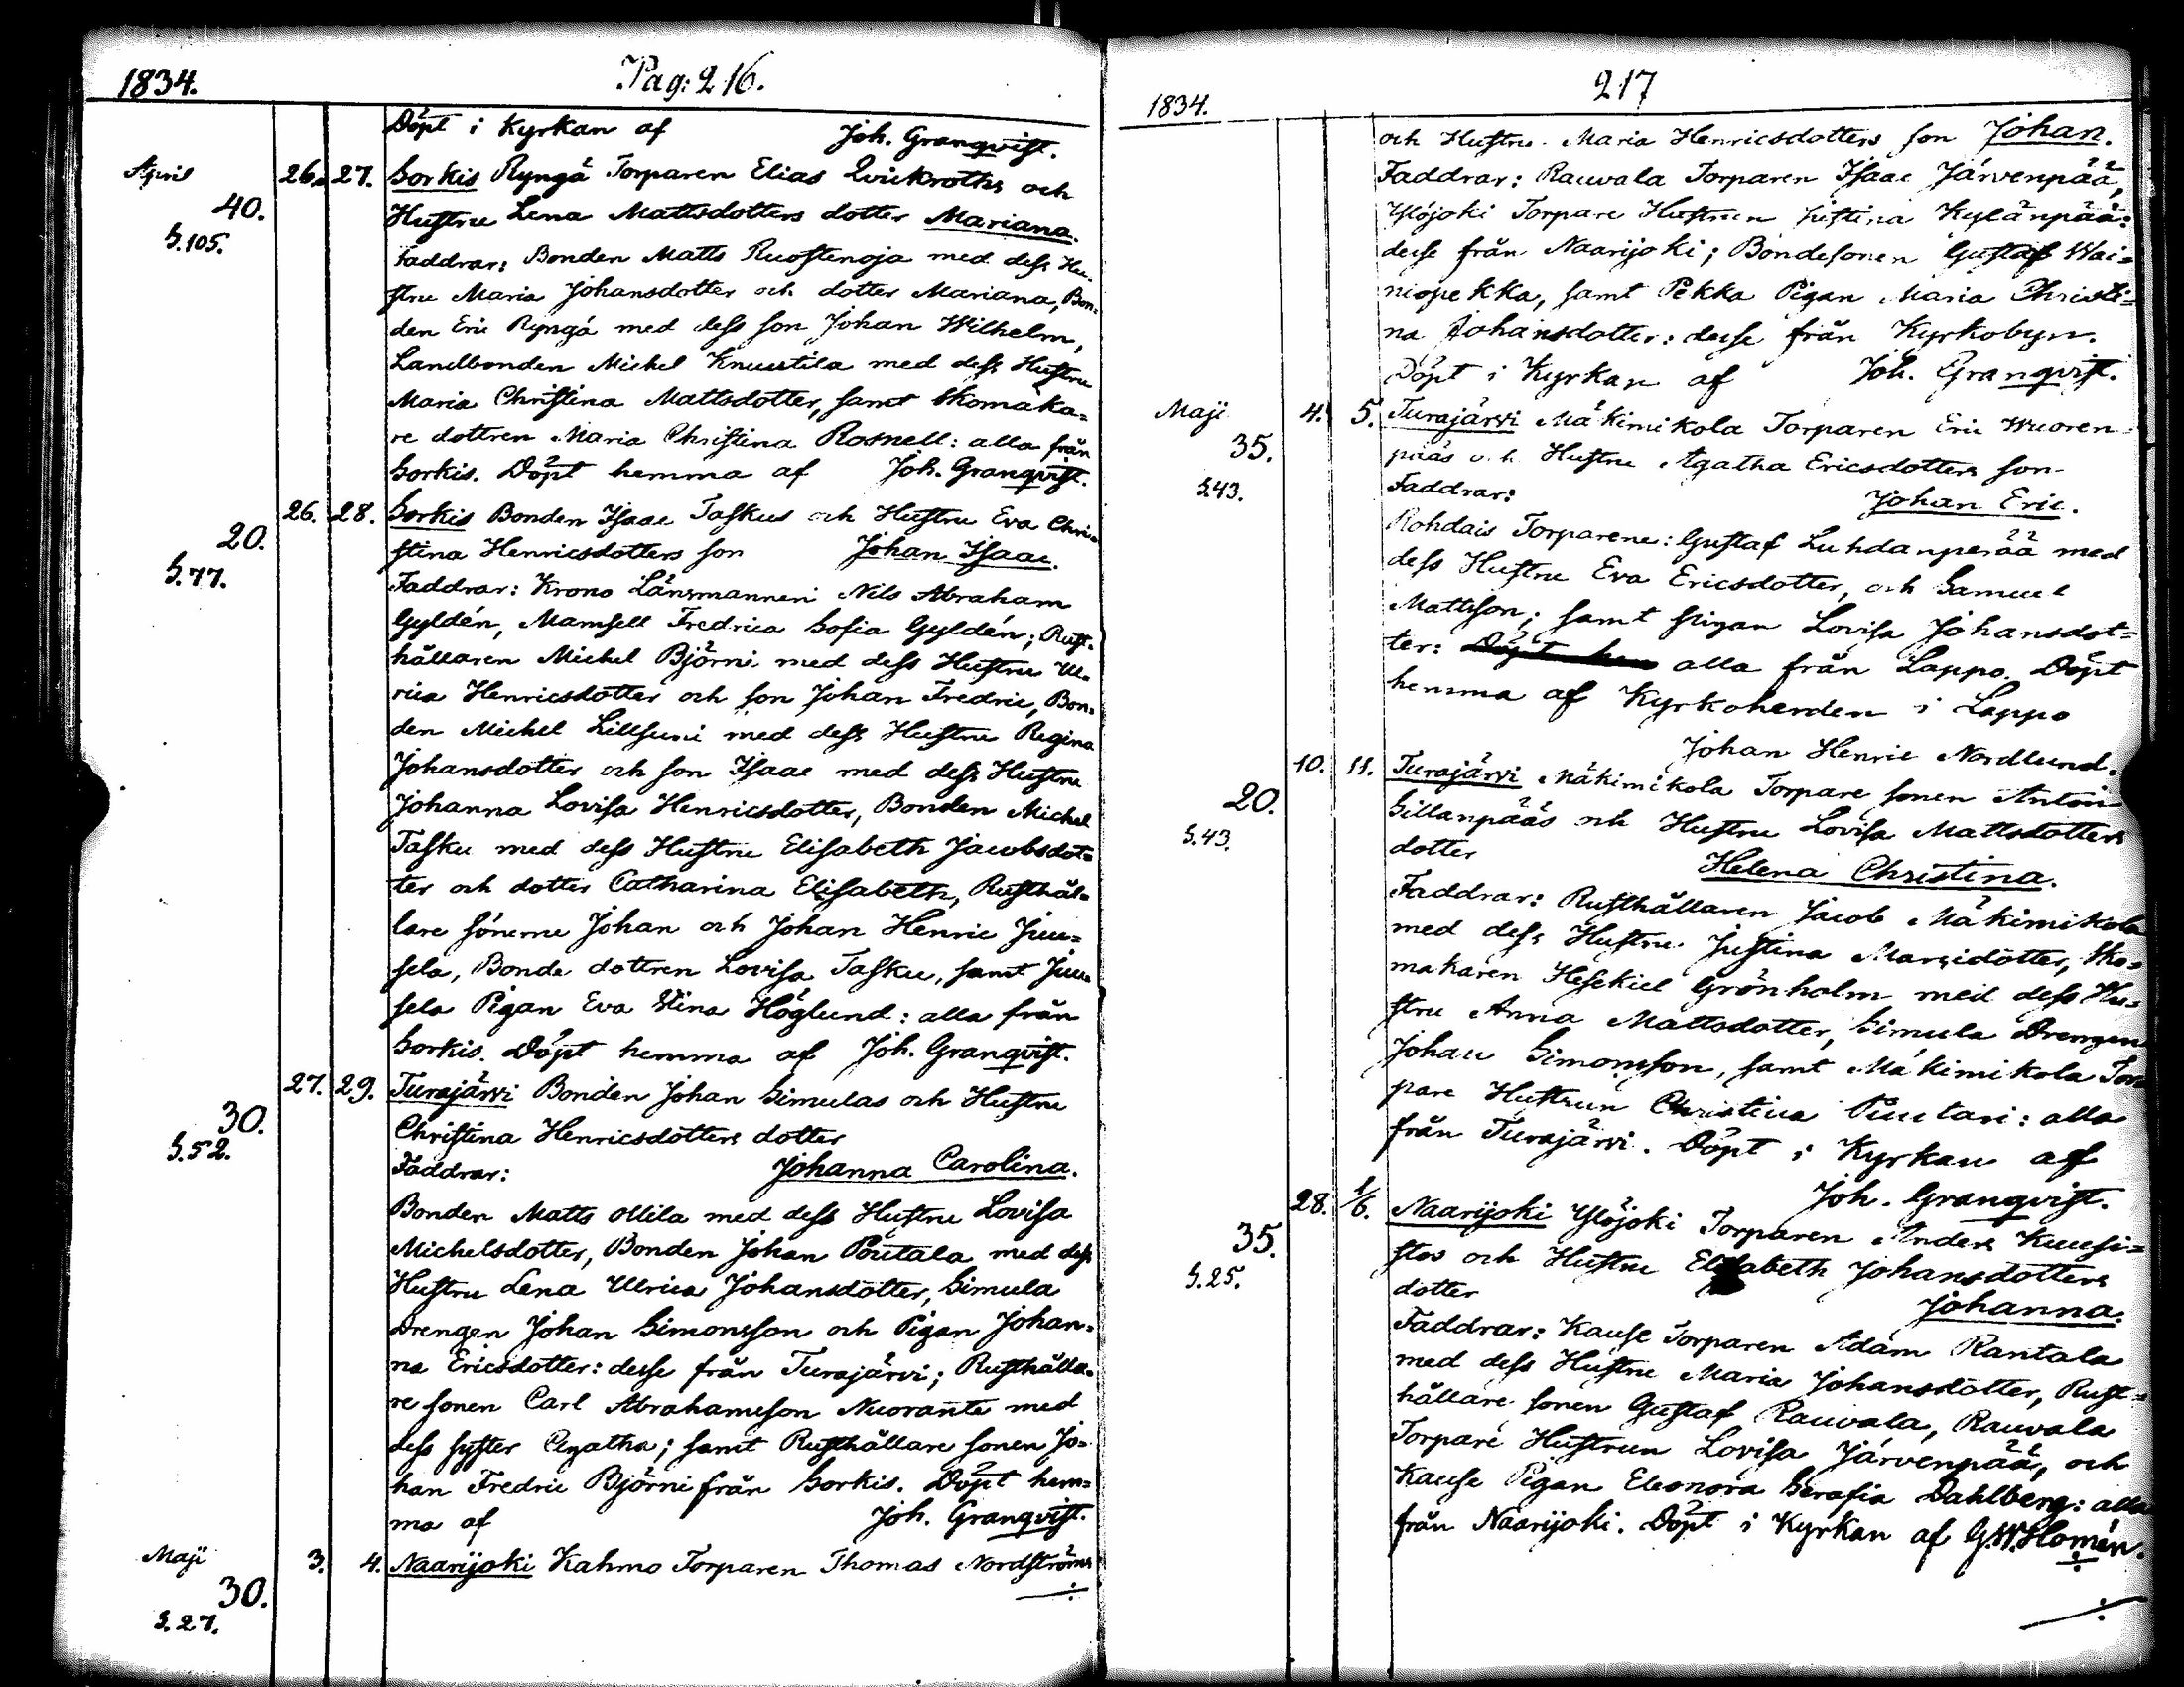 1834.
Pag: 216.
Döpt i Kyrkan af Joh. Granqvist.
April 26. 27. Sorkis Ryngä Torparen Elias Qvickroths och
40. Hustru Lena Mattsdotters dotter Mariana.
S.105. Faddrar: Bonden Matts Ruostenoja med dess Hu-
stru Maria Johansdotter och dotter Mariana, Bon-
den Eric Ryngä med dess son Johan Wilhelm,
Landbonden Michel Knuutila med dess Hustru
Maria Christina Mattsdotter, samt Skomaka=
re dottren Maria Christina Rosnell: alla från
Sorkis. Döpt hemma af Joh. Granqvist.
26. 28. Sorkis Bonden Isaac Taskus och Hustru Eva Chri-
20. stina Henricsdotters son Johan Isaac.
S.77. Faddrar: Krono Länsmannen Nils Abraham
Gyldén, Mamsell Fredrica Sofia Gyldén; Rust-
hållaren Michel Björni med dess Hustru Ul-
rica Henricsdotter och son Johan Fredric, Bon=
den Michel Lillsuni med dess Hustru Regina
Johansdotter och son Isaac med dess Hustru
Johanna Lovisa Henricsdotter, Bonden Michel
Tasku med dess Hustru Elisabeth Jacobsdot=
ter och dotter Catharina Elisabeth, Rusthål=
lare sönerne Johan och Johan Henric Juu=
sela, Bonde dottren Lovisa Tasku, samt Juu
sela Pigan Eva Stina Höglund: alla från
Sorkis. Döpt hemma af Joh. Granqvist.
27. 29. Turajärvi Bonden Johan Simulas och Hustru
30. Christina Henricsdotters dotter
S.52. Faddrar: Johanna Carolina.
Bonden Matts Ollila med dess Hustru Lovisa
Michelsdotter, Bonden Johan Poutala med dess
Hustru Lena Ulrica Johansdotter, Simula
Drengen Johan Simonsson och Pigan Johan=
na Ericsdotter: desse från Turajärvi; Rusthålla-
re sonen Carl Abrahamsson Nuoranto med
dess syster Agatha; samt Rusthållare sonen Jo-
han Fredric Björni från Sorkis. Döpt hem=
ma af Joh. Granqvist.
Maji 3. 4. Naarijoki Kahmo Torparen Thomas Nordströms
30.
S.27.
217
1834.
och Hustru Maria Henricsdotters son Johan.
Faddrar: Rauvala Torparen Isaac Järvenpää,
Ylöjoki Torpare Hustrun Justina Kylänpää:
desse från Naarijoki; Bondesonen Gustaf Wai=
niopekka, samt Pekka Pigan Maria Christi=
na Johansdotter: desse från Kyrkobyn.
Döpt i Kyrkan af Joh. Granqvist.
Maji 4. 5. Turajärvi Mäkimikola Torparen Eric Wuoren=
35. pääs och Hustru Agatha Ericsdotters son
S.43. Faddrar: Johan Eric.
Rohdais Torparene: Gustaf Luhdanperää med
dess Hustru Eva Ericsdotter, och Samuel
Mattsson; samt Pigan Lovisa Johansdot=
ter: alla från Lappo. Döpt
hemma af Kyrkoherden i Lappo
Johan Henric Nordlund.
10. 11. Turajärvi Mäkimikola Torpare sonen Anton
20. Sillanpääs och Hustru Lovisa Mattsdotters
S.43. dotter Helena Christina.
Faddrar: Rusthållaren Jacob Mäkimikola
med dess Hustru Justina Marcidotter, Sko=
makaren Hesekiel Grönholm med dess Hu=
stru Anna Mattsdotter, Simula Drengen
Johan Simonsson, samt Mäkimikola Tor
pare Hustrun Christina Puutari: alla
från Turajärvi. Döpt i Kyrkan af
Joh. Granqvist.
28. 1/6. Naarijoki Ylöjoki Torparen Anders Kuusi=
35. stos och Hustru Elisabeth Johansdotters
S.25. dotter Johanna.
Faddrar: Kause Torparen Adam Rantala
med dess Hustru Maria Johansdotter, Rust=
hållare sonen Gustaf Rauvala, Rauvala
Torpare Hustrun Lovisa Järvenpää, och
Kause Pigan Eleonora Serafia Dahlberg: alla
från Naarijoki. Döpt i Kyrkan af G.W. Homén.